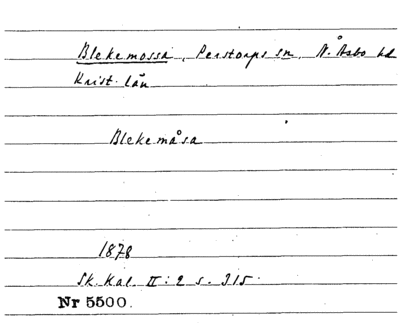 Blekemossa, Perstorps sn, N. Åsbo hd
Krist. län
Blekemåsa
1878
Sk. Kal. II: 2 s. 315.
Nr 5500.